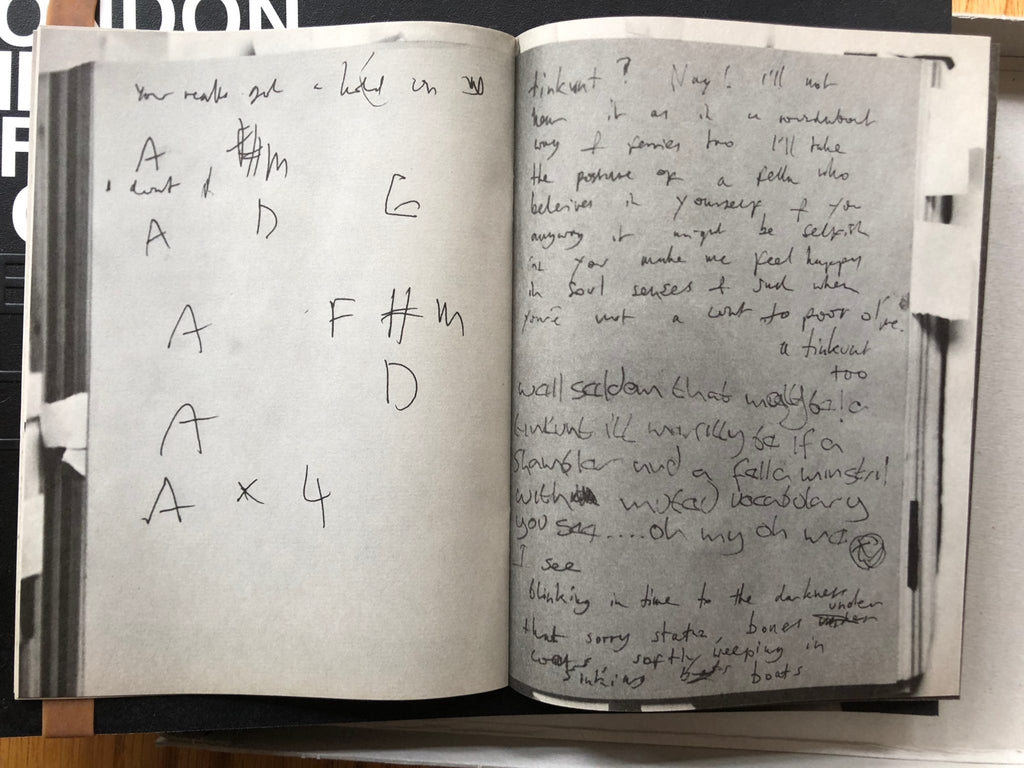 ONDON
You really got a hold on me
A F#m
I don't l
A D G
A F#m
D
A
A x 4
tinkunt? Nay! I'll not
hear it as it a roundabout
way of ferries too I'll take
the posture of a fella who
beleives in yourself & you
anyway it might be selfish
in you make me feel happy
in soul senses & such when
you're not a cunt to poor ol'
me.
a tinkunt
too
well seldom that
tinkunt ill be if a
shambler and a fella minstril
with muted vocabulary
you see....oh my oh me
I see
blinking in time to the darkness
that sorry state, bones under
coats, softly weeping in
sinking boats